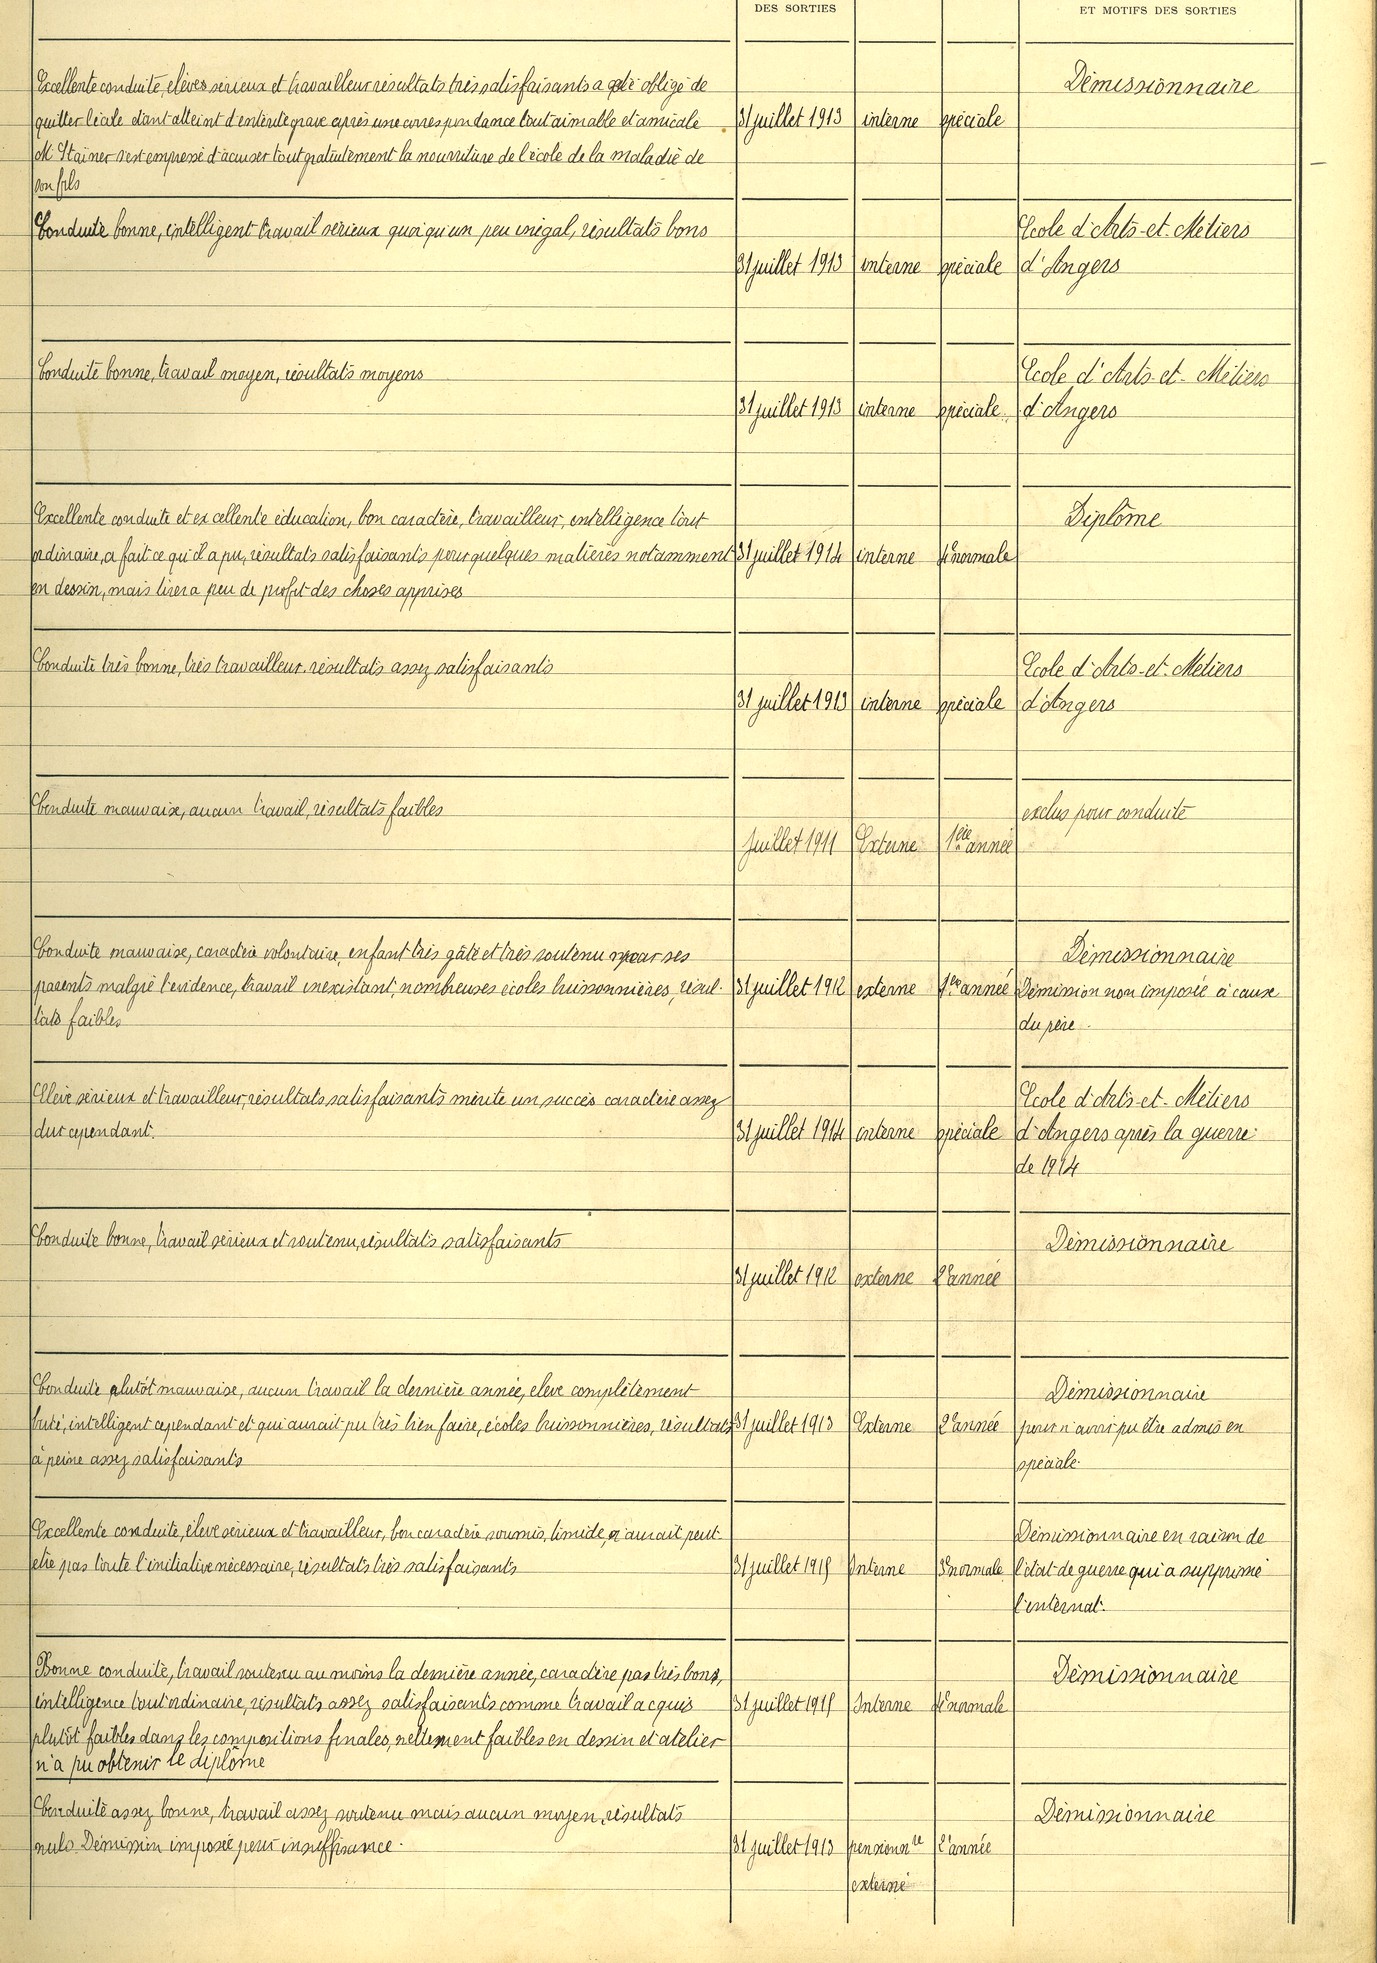 DES SORTIES
ET MOTIFS DES SORTIES
Excellente conduite, élèves sérieux et travailleur résultats très satisfaisants a été obligé de
quitter l'école étant atteint d'entérite grave après une correspondance tout aimable et amicale
M. Stainer s'est empressé d'accuser tout gratuitement la nourriture de l'école de la maladie de
son fils
31 juillet 1913 interne spéciale
Démissionnaire
Conduite bonne, intelligent travail sérieux quoiqu'un peu inégal, résultats bons
31 juillet 1913 interne spéciale
Ecole d'Arts-et-Métiers
d'Angers
Conduite bonne, travail moyen, résultats moyens
31 juillet 1913 interne spéciale
Ecole d'Arts-et-Métiers
d'Angers
Excellente conduite et excellente éducation, bon caractère, travailleur, intelligence tout
ordinaire, a fait ce qu'il a pu, résultats satisfaisants pour quelques matières notamment
en dessin, mais tirera peu de profit des choses apprises
31 juillet 1914 interne 4e normale
Diplôme
Conduite très bonne, très travailleur, résultats assez satisfaisants
31 juillet 1913 interne spéciale
Ecole d'Arts-et-Métiers
d'Angers
Conduite mauvaise, aucun travail, résultats faibles
Juillet 1911 Externe 1ère année
exclus pour conduite
Conduite mauvaise, caractère volontaire, enfant très gâté et très soutenu par ses
parents malgré l'évidence, travail inexistant, nombreuses écoles buissonnières, résul-
tats faibles
31 juillet 1912 externe 1ère année
Démissionnaire
Démission non imposée à cause
du père.
Elève sérieux et travailleur, résultats satisfaisants mérite un succès caractère assez
dur cependant.
31 juillet 1914 interne spéciale
Ecole d'Arts-et-Métiers
d'Angers après la guerre
de 1914
Conduite bonne, travail sérieux et soutenu, résultats satisfaisants
31 juillet 1912 externe 2e année
Démissionnaire
Conduite plutôt mauvaise, aucun travail la dernière année, élève complètement
buté, intelligent cependant et qui aurait pu très bien faire, écoles buissonnières, résultats
à peine assez satisfaisants
31 juillet 1913 Externe 2e année
Démissionnaire
pour n'avoir pu être admis en
spéciale.
Excellente conduite, élève sérieux et travailleur, bon caractère soumis, timide, n'aurait peut-
être pas toute l'initiative nécessaire, résultats très satisfaisants
31 juillet 1915 Interne 3e normale
Démissionnaire en raison de
l'état de guerre qui a supprimé
l'internat.
Bonne conduite, travail soutenu au moins la dernière année, caractère pas très bons,
intelligence tout ordinaire, résultats assez satisfaisants comme travail acquis
plutôt faibles dans les compositions finales, nettement faibles en dessin et atelier
n'a pu obtenir le diplôme
31 juillet 1915 Interne 4e normale
Démissionnaire
Conduite assez bonne, travail assez soutenu mais aucun moyen, résultats
nuls. Démission imposée pour insuffisance.
31 juillet 1913 pensionre 2e année
externé
Démissionnaire